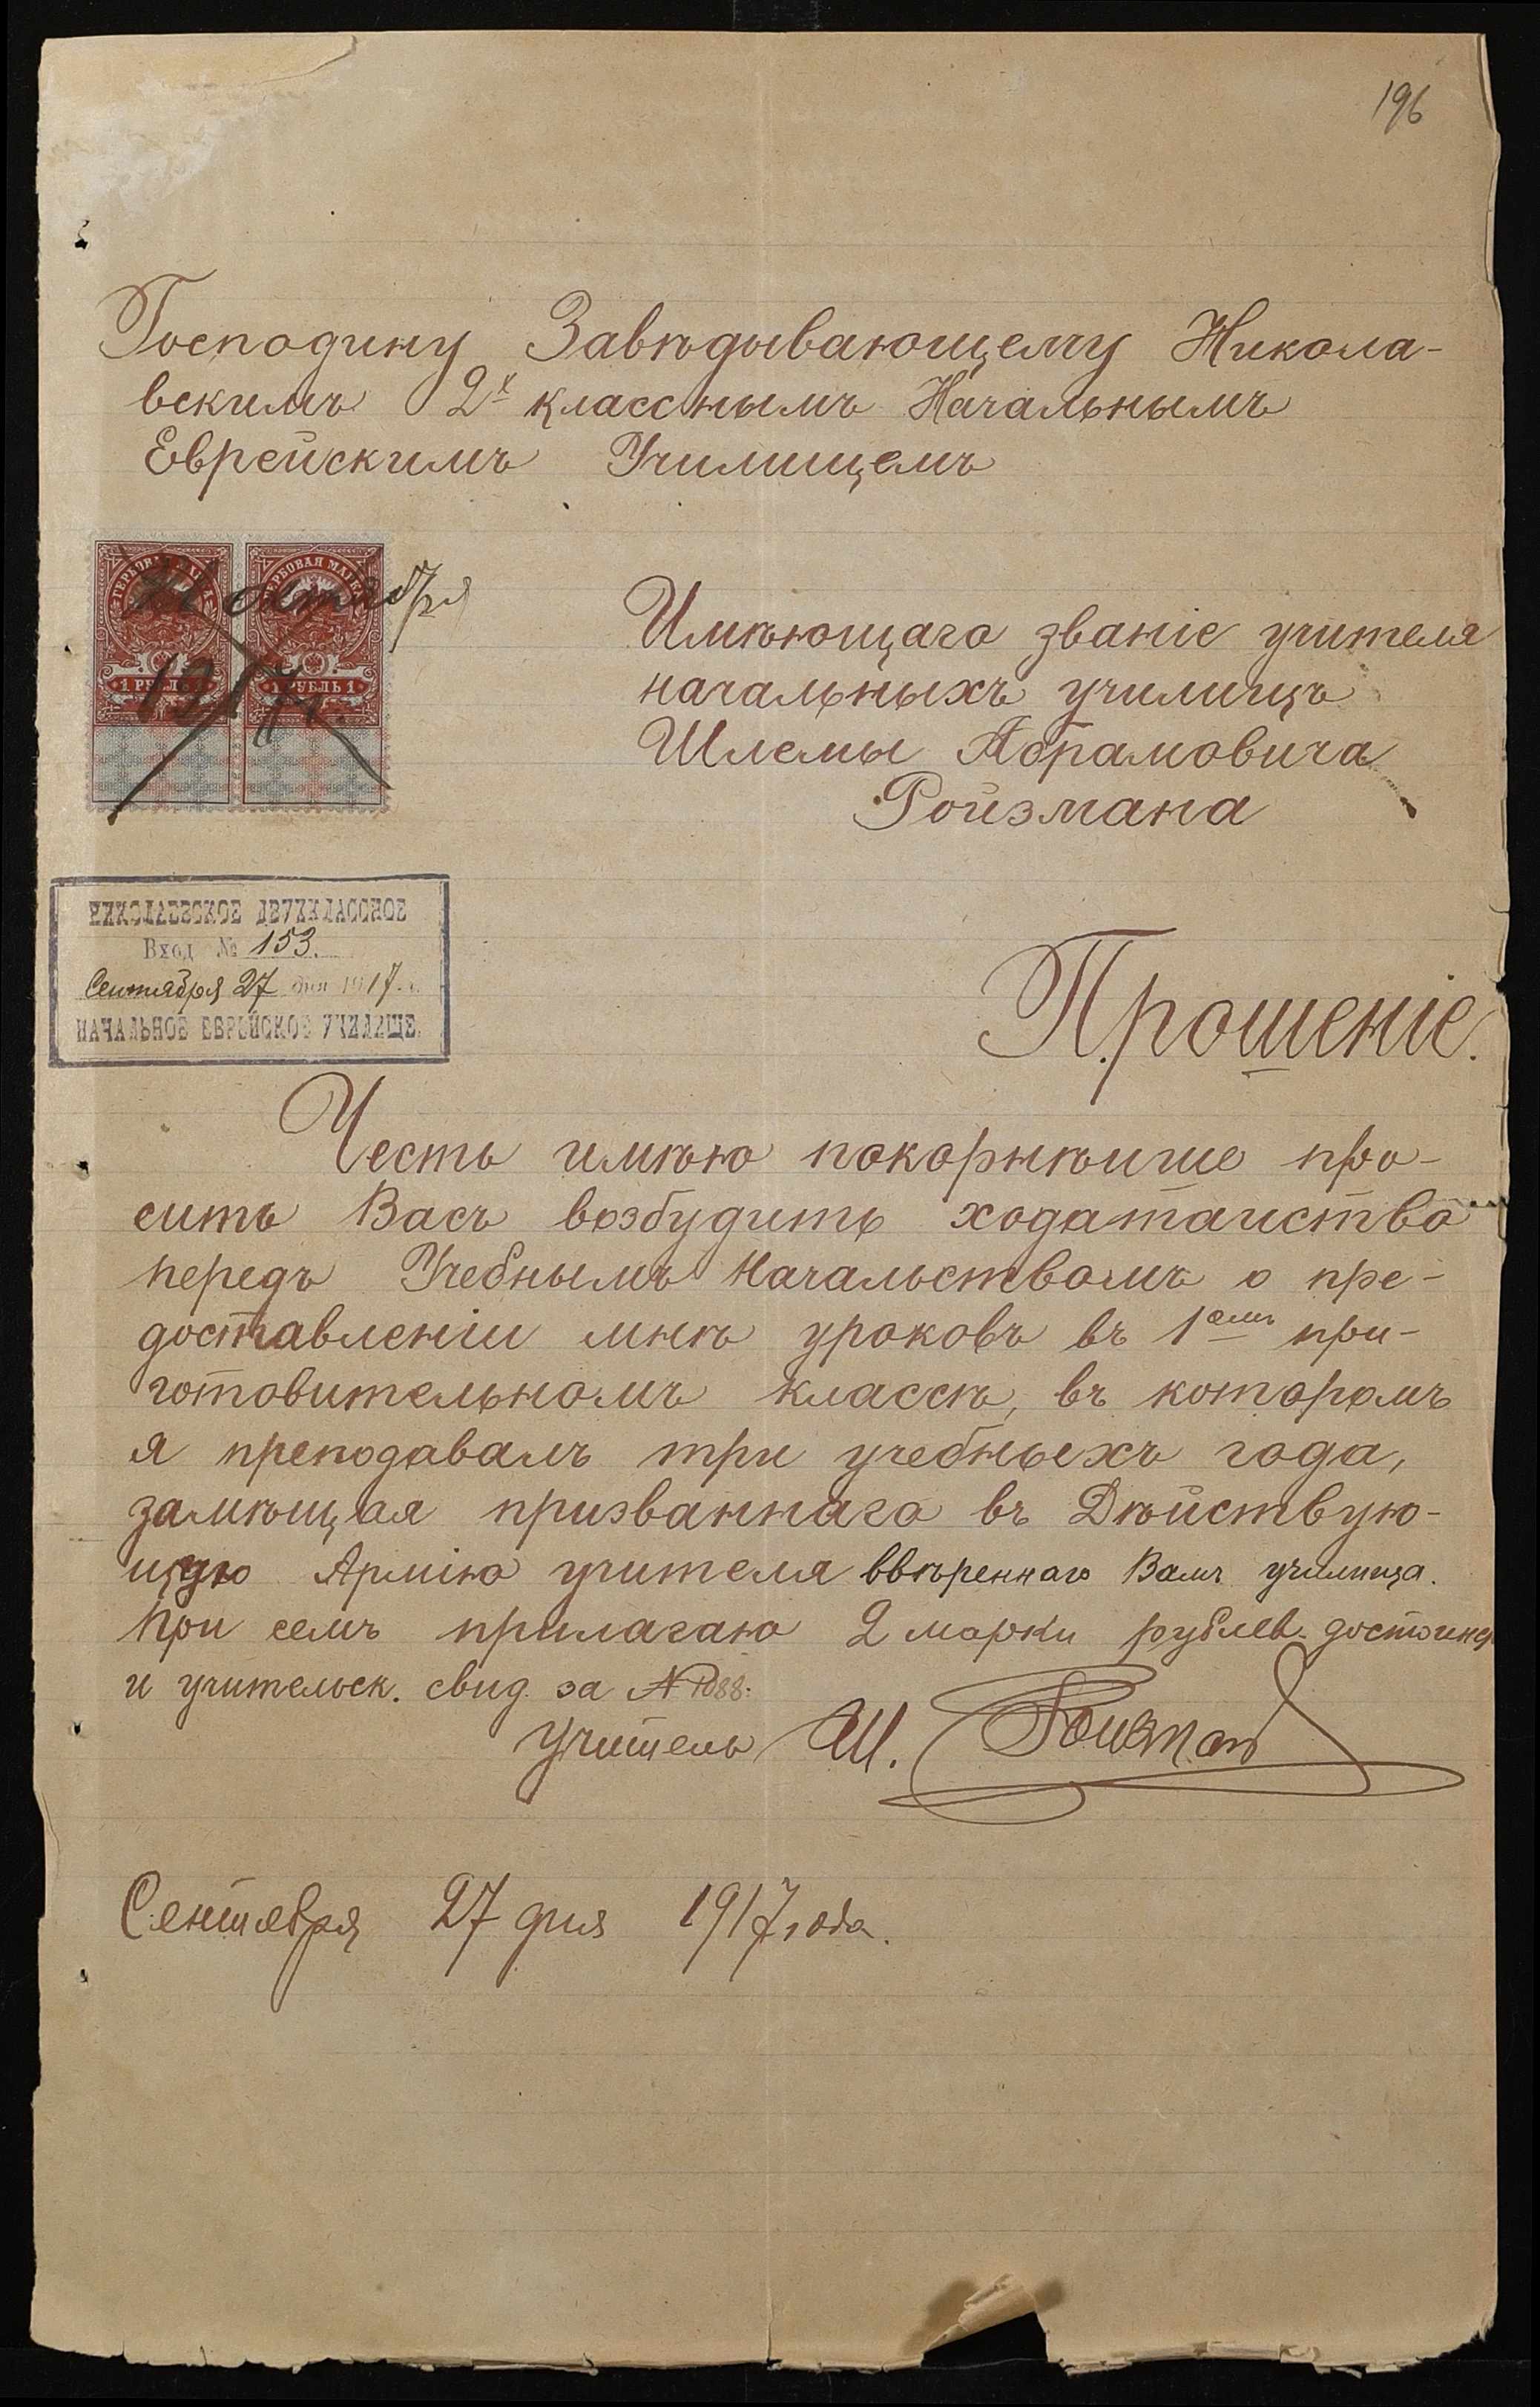 196
Господину Завѣдывающему Никола-
вскимъ 2х классным Начальнымъ
Еврейскимъ Училищемъ
ГЕРБОВАЯ МАРКА ГЕРБОВАЯ МАРКА
октября
1917 г.
1 РУБЛЬ 1 1 РУБЛЬ 1
Имѣющаго званіе учителя
начальныхъ училищъ
Шлемы Абрамовича
Ройзмана
НИКОЛАЕВСКОЕ ДВУХКЛАССНОЕ
Вход № 153.
Сентября 27 дня 1917 г.
НАЧАЛЬНОЕ ЕВРЕЙСКОЕ УЧИЛИЩЕ.
Прошеніе.
Честь имѣю покорнѣйше про-
сить Васъ возбудить ходатайство
передъ Учебнымъ Начальствомъ о пре-
доставленіи мнѣ уроковъ въ 1омъ при-
готовительномъ классѣ, въ которомъ
я преподавалъ три учебныхъ года,
замѣщая призваннаго въ Дѣйствую-
щую Армію учителя ввѣреннаго Вамъ училища.
При семъ прилагаю 2 марки рублев. достоинст
и учительск. свид. за № 1088.
Учитель Ш. Ройзман
Сентября 27 дня 1917 года.